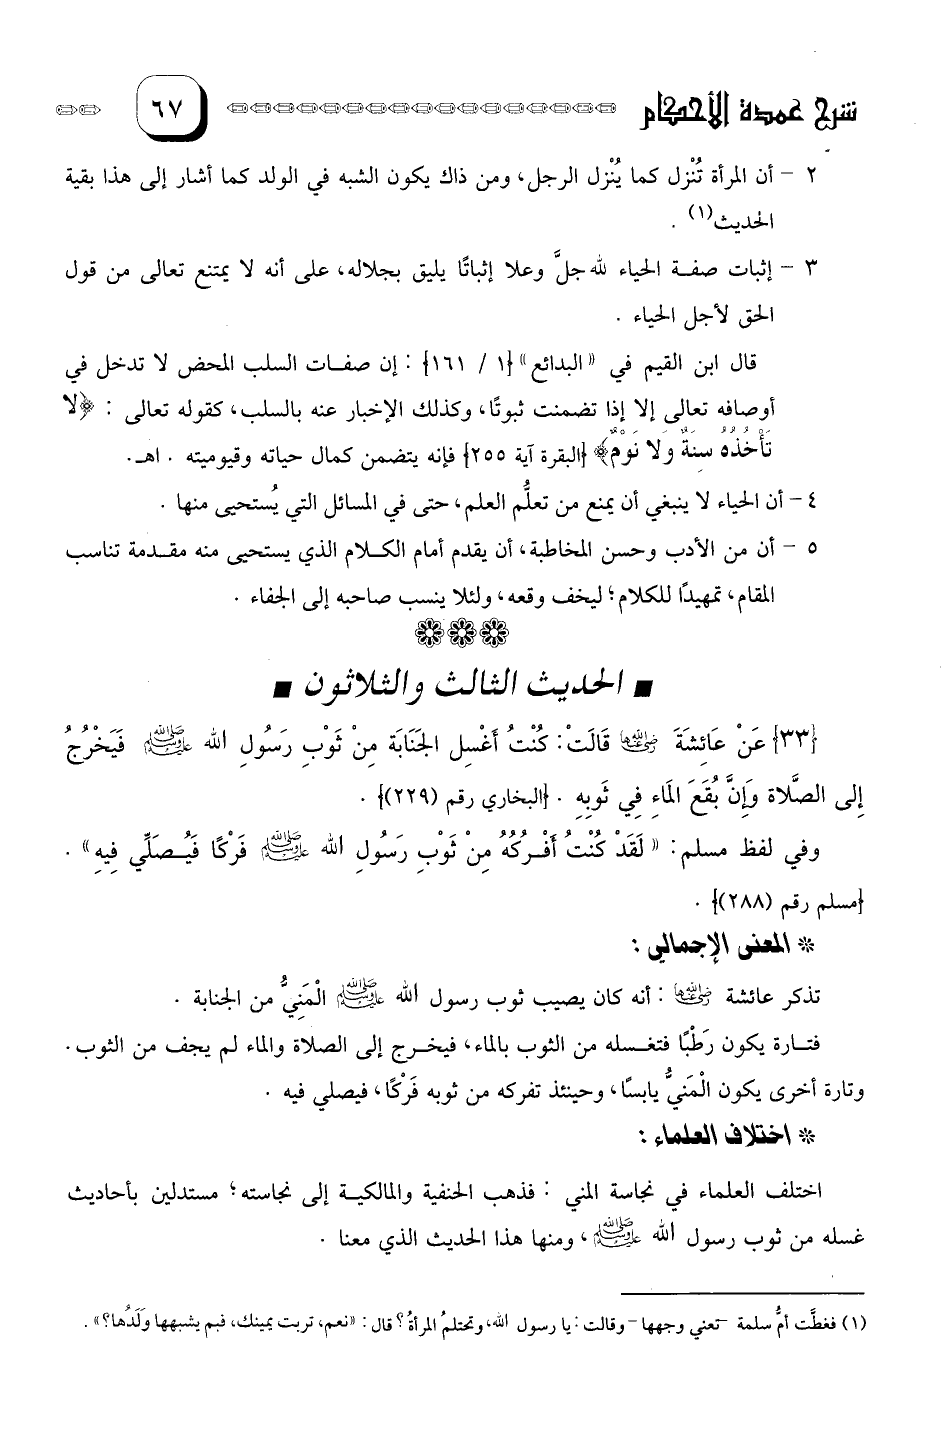 شرح عمدة الأحكام ٦٧
٢ - أن المرأة تُنْزل كما يُنْزل الرجل، ومن ذاك يكون الشبه في الولد كما أشار إلى هذا بقية
الحديث(١) .
٣ - إثبات صفة الحياء لله جلَّ وعلا إثباتًا يليق بجلاله، على أنه لا يمتنع تعالى من قول
الحق لأجل الحياء .
قال ابن القيم في «البدائع» {١ / ١٦١} : إن صفات السلب المحض لا تدخل في
أوصافه تعالى إلا إذا تضمنت ثبوتًا، وكذلك الإخبار عنه بالسلب، كقوله تعالى : ﴿لا
تَأْخُذُهُ سِنَةٌ وَلا نَوْمٌ﴾ {البقرة آية ٢٥٥} فإنه يتضمن كمال حياته وقيوميته . اهـ.
٤ - أن الحياء لا ينبغي أن يمنع من تعلُّم العلم، حتى في المسائل التي يُستحيى منها .
٥ - أن من الأدب وحسن المخاطبة، أن يقدم أمام الكلام الذي يستحيى منه مقدمة تناسب
المقام، تمهيدًا للكلام؛ ليخف وقعه، ولئلا ينسب صاحبه إلى الجفاء .
■ الحديث الثالث والثلاثون ■
{٣٣} عَنْ عَائِشَةَ رضي الله عنها قَالَتْ: كُنْتُ أَغْسِل الجَنَابَة مِنْ ثَوْبِ رَسُولِ الله ﷺ فَيَخْرُجُ
إِلى الصَّلاة وَإِنَّ بُقَعَ المَاءِ فِي ثَوبِهِ . {البخاري رقم (٢٢٩)} .
وفي لفظ مسلم: « لَقَدْ كُنْتُ أَفْرُكُهُ مِنْ ثَوْبِ رَسُولِ الله ﷺ فَرْكًا فَيُصَلِّي فِيهِ» .
{مسلم رقم (٢٨٨)} .
* المعنى الإجمالي :
تذكر عائشة رضي الله عنها : أنه كان يصيب ثوب رسول الله ﷺ الْمَنِيُّ من الجنابة .
فتارة يكون رَطْبًا فتغسله من الثوب بالماء، فيخرج إلى الصلاة والماء لم يجف من الثوب.
وتارة أخرى يكون الْمَنيُّ يابسًا، وحينئذ تفركه من ثوبه فَرْكًا، فيصلي فيه .
* اختلاف العلماء :
اختلف العلماء في نجاسة المني : فذهب الحنفية والمالكية إلى نجاسته؛ مستدلين بأحاديث
غسله من ثوب رسول الله ﷺ، ومنها هذا الحديث الذي معنا .
(١) فغطَّت أمُّ سلمة -تعني وجهها- وقالت: يا رسول الله، وتحتلمُ المرأةُ؟ قال: «نعم، تربت يمينك، فبم يشبهها ولَدُها؟» .